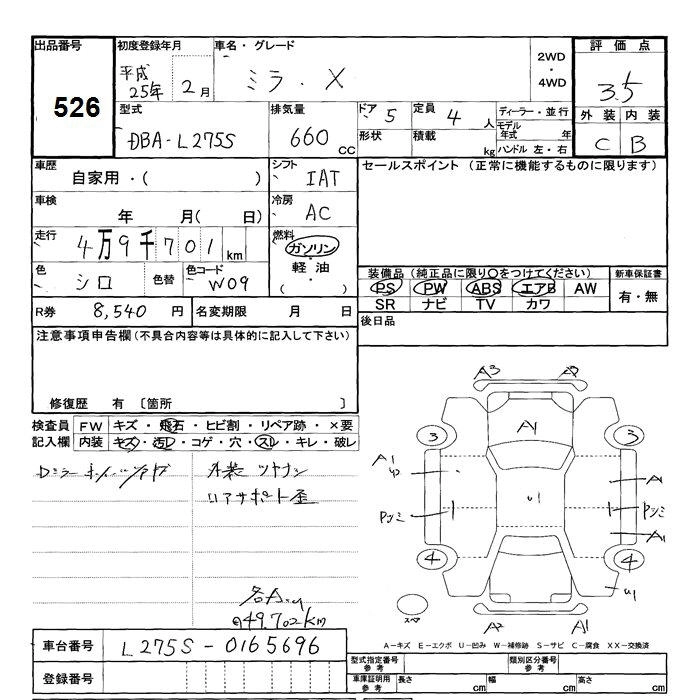 出品番号 初度登録年月 車名・グレード 2WD・4WD 評価点
526 平成25年 2月 ミラ・X 3.5
型式 排気量 ドア 5 定員 4人 ディーラー・並行 外装 内装
DBA-L275S 660cc 形状 積載 kg モデル年式 年 C B
ハンドル 左・右
車歴 シフト セールスポイント (正常に機能するものに限ります)
自家用・( ) IAT
車検 冷房
年 月( 日) AC
走行 4万9千701km 燃料
ガソリン・軽油・( )
色 シロ 色替 色コード W09
装備品 (純正品に限り○をつけてください) 新車保証書
PS PW ABS エアB AW 有・無
SR ナビ TV カワ
R券 8,540円 名変期限 月 日 後日品
注意事項申告欄(不具合内容等は具体的に記入して下さい)
修復歴 有 〔箇所 〕
検査員記入欄 FW キズ・飛石・ヒビ割・リペア跡・×要
内装 キズ・汚レ・コゲ・穴・スレ・キレ・破レ
外装
リアサポート歪
49,702km
A3 A2
A1
3 3
A1 A
U1
A1
4 4
U1
スペア
A2 A1
A-キズ E-エクボ U-凹み W-補修跡 S-サビ C-腐食 XX-交換済
車台番号 L275S-0165696
登録番号
型式指定番号 参考 類別区分番号 参考
車庫証明用 参考 長さ cm 幅 cm 高さ cm